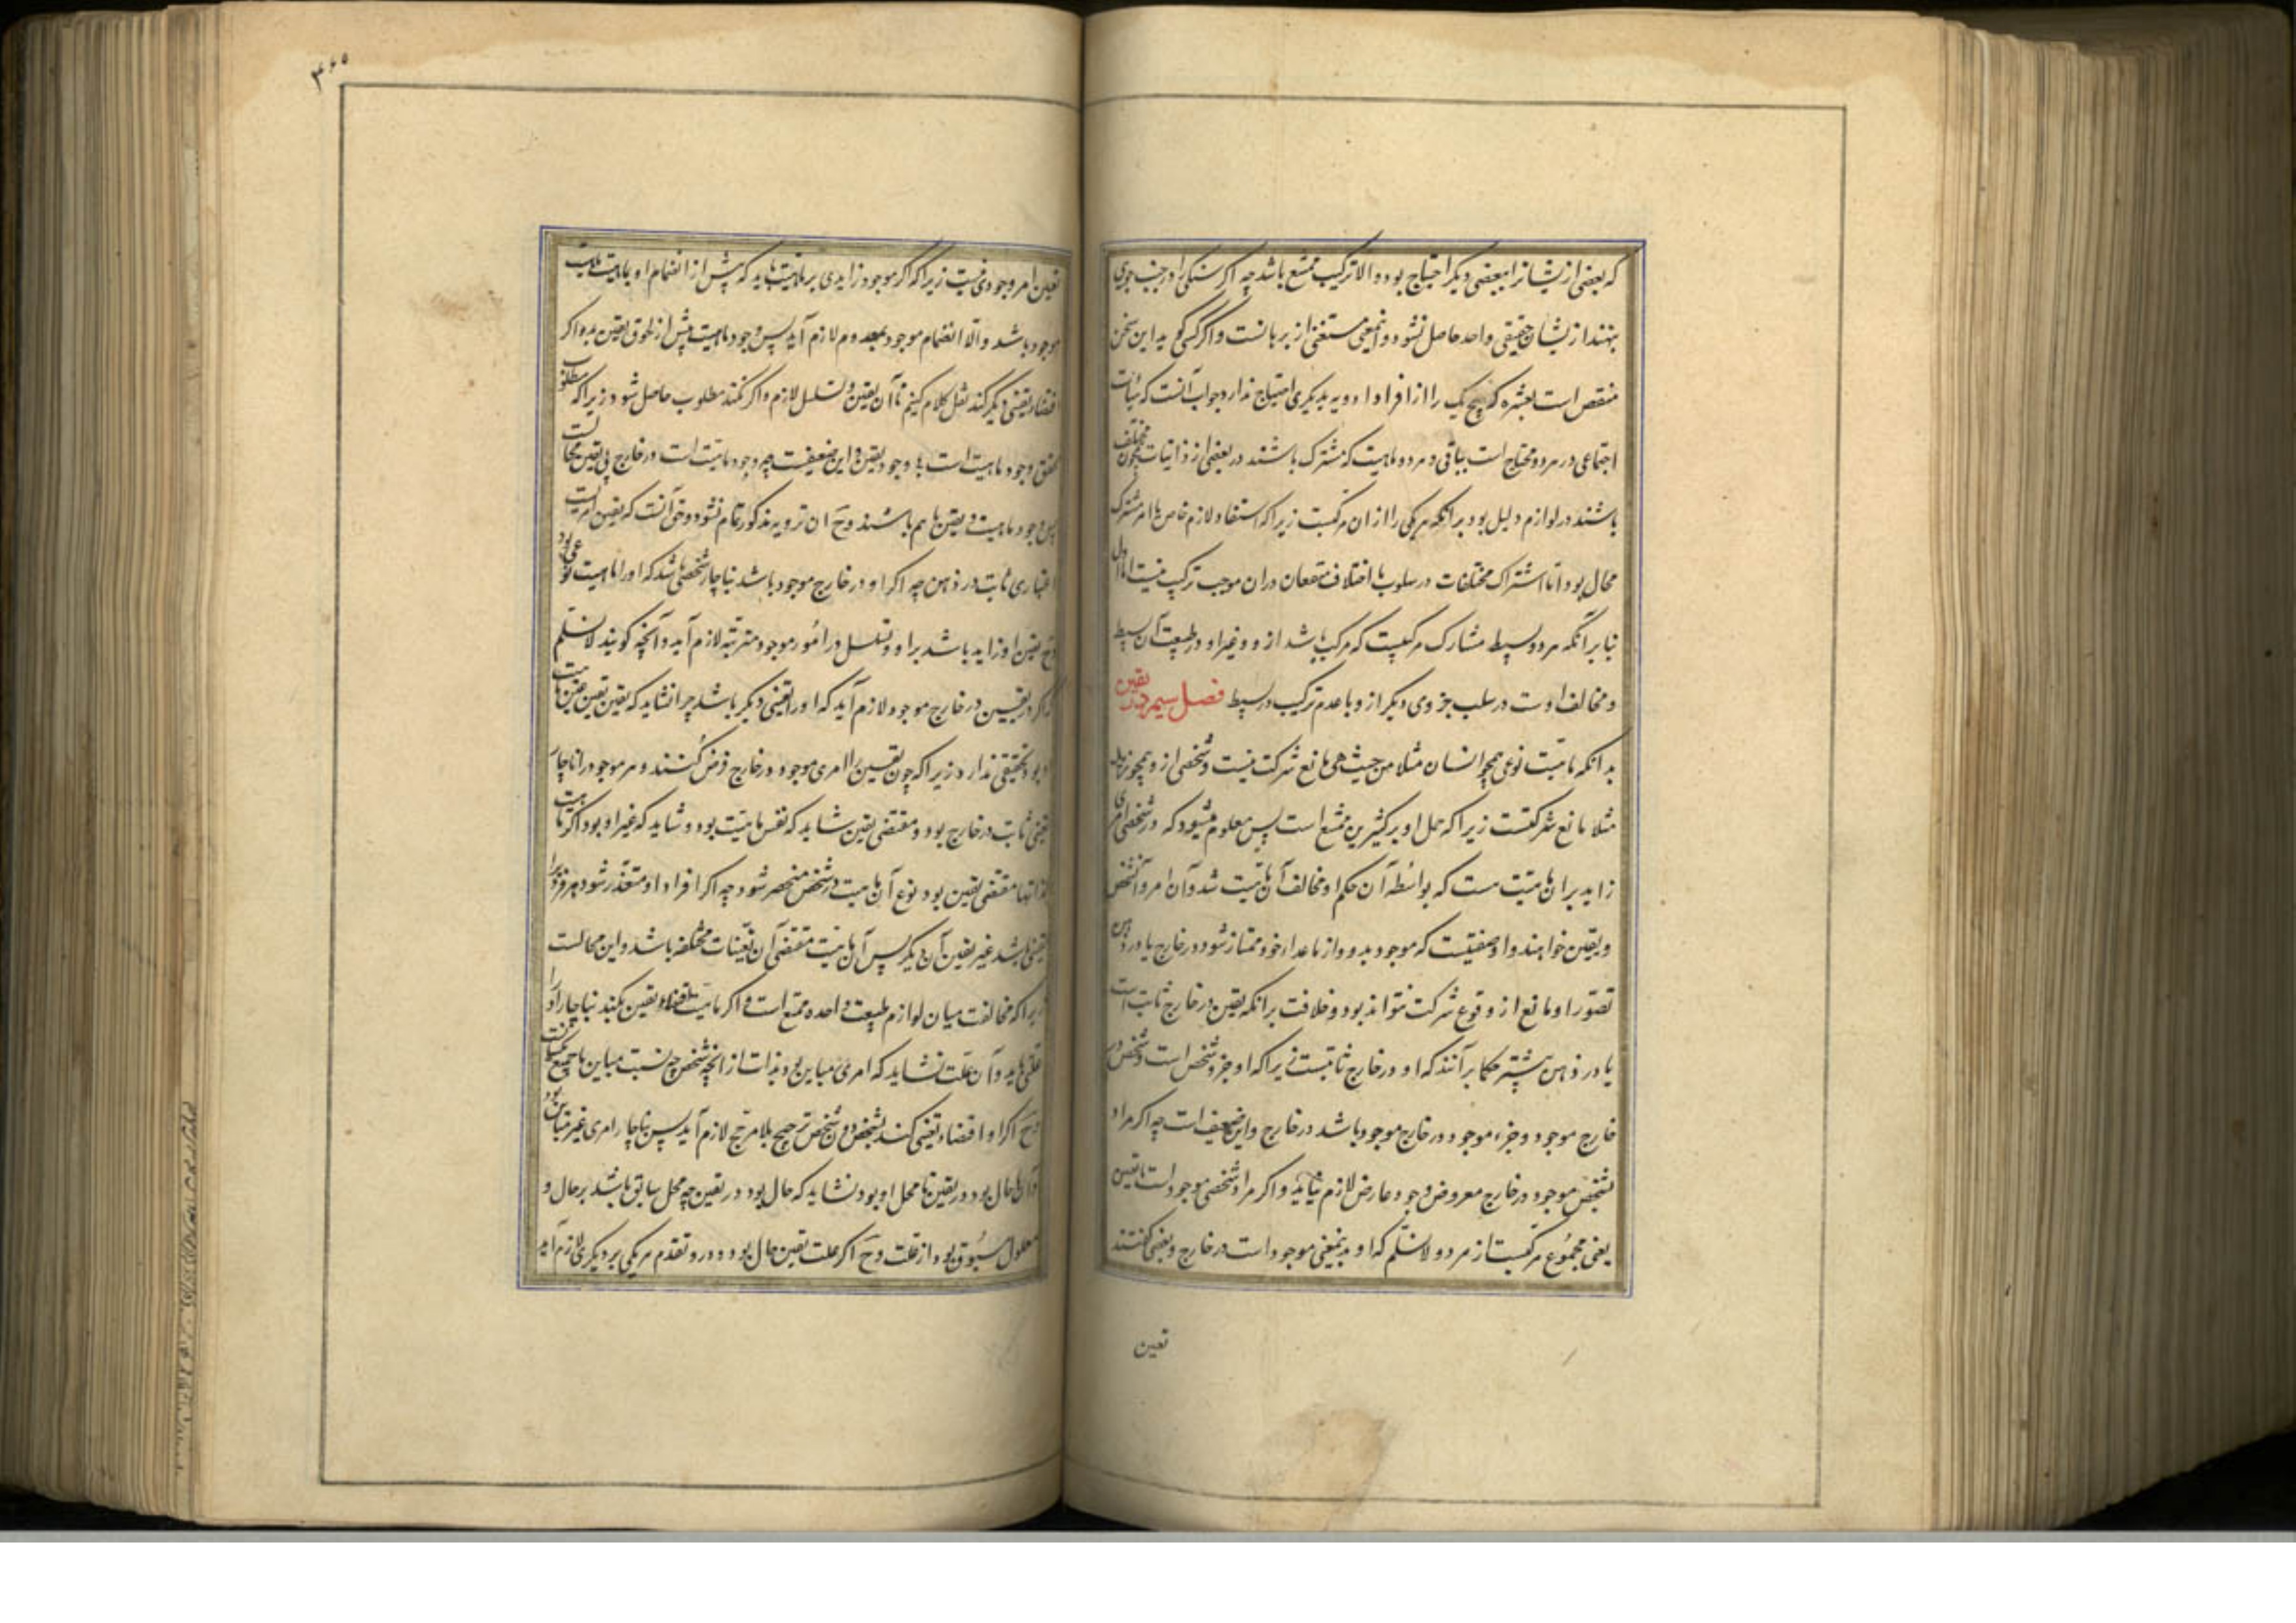 که بعضی از ایشانرا ببعضی دیگر احتیاج بود و الا ترکیب ممتنع باشد چه اگر سنگی را در جنب جوی
بنهند از ایشان حقیقتی واحد حاصل نشود و اینمعنی مستغنی از برهانست و اگر کسی گوید این سخن
منتقض است بعشره که هیچ یک را از افراد ادویه بدیگری احتیاج ندارد جواب آنست که هیئات
اجتماعی در هر دو محتاج است بباقی و هر دو ماهیت که مشترک باشند در بعضی از ذاتیات چون مختلف
باشند در لوازم دلیل بود بر آنکه هر یکی را از ان مرکبست زیرا که استفاد لازم خاص با امر مشترک
محال بود اما اشتراک مختلفات در سلوب با اختلاف متفقان دران موجب ترکیب نیست اما اول
بنا بر آنکه هر دو بسیط مشارک مرکبیست که مرکب باشد از و و غیر او در طبیعت آن بسیط
و مخالف اوست در سلب جزوی دیگر از و با عدم ترکیب در بسیط فصل سیم در تعین
بدانکه ماهیت نوعی همچو انسان مثلا من حیث هی مانع شرکت نیست و شخصی از و همچو زید
مثلا مانع شرکتست زیرا که حمل او بر کثیرین ممتنع است پس معلوم میشود که در شخص امری
زاید بر ان ماهیت هست که بواسطه آن حکم او مخالف آن ماهیت شد و آن امر و آن تشخص
و تعین خوانند و او صفتیست که موجود بدو و از ماعداء خود ممتاز شود در خارج یا در ذهن
تصور او مانع از وقوع شرکت نتواند بود و خلافست بر آنکه تعین در خارج ثابت است
یا در ذهن بیشتر حکما بر آنند که او در خارج ثابتست زیرا که او جزو شخص است و شخص در
خارج موجود و جزء موجود در خارج موجود باشد در خارج و این ضعیف است چه اگر مراد
بشخص موجود در خارج معروض وجود عارض لازم نیاید و اگر مراد شخصی موجود است با تعین
یعنی مجموع مرکبست از هر دو لانسلم که او بدینمعنی موجود است در خارج و بعضی گفتند
تعین
۳۶۵
تعین امر وجودی نیست زیرا که اگر موجود زایدی بر ماهیت باید که پیش از انضمام او با ماهیت ماهیت
موجود باشد و الا انضمام موجود بمعدوم لازم آید پس وجود ماهیت پیش از لحوق تعین بدو اگر
اقتضاء تعینی دیگر کند نقل کلام کنیم با آن تعین و تسلسل لازم و اگر نکند مطلوب حاصل شود زیرا که مطلوب
تحقق وجود ماهیت است با وجود تعین و این ضعیفست چه وجود ماهیت است در خارج بی تعین محالست
پس وجود ماهیت و تعین با هم باشند و ح ان تردید مذکور تمام نشود و حق آنست که تعین امریست
اعتباری ثابت در ذهن چه اگر او در خارج موجود باشد بناچار شخصی باشد که او را ماهیت نوعی بود
و ح تعین او زاید باشد بر او و تسلسل در امور موجود مترتبه لازم آید و آنچه گویند لانسلم
که اگر تعین در خارج موجود لازم آید که او را تعینی دیگر باشد چرا نشاید که تعین تعین عین ماهیت
او بود تحقیقی ندارد زیرا که چون تعین را امری موجود در خارج فرض کنند و هر موجود را ناچار
تعینی ثابت در خارج بود و مقتضی تعین شاید که نفس ماهیت بود و شاید که غیر او بود اگر ماهیت
لذاتها مقتضی تعین بود نوع آن ماهیت در شخص منحصر شود چه اگر افراد او متعدد شود هر فرد را
تعینی باشد غیر تعین آن دیگر پس آن ماهیت مقتضی آن تعینات مختلفه باشد و این محالست
زیرا که مخالفت میان لوازم طبیعت واحده ممتنع است و اگر ماهیت اقتضاء تعین نکند بناچار او را
علتی باید و آن علت نشاید که امری مباین بود بذات از آنچه تشخص چه نسبت مباین با جمیع یکسانست
و ح اگر او اقتضاء تعینی کند بشخص دون شخص ترجیح بلا مرجح لازم آید پس ناچار امری غیر مباین بود
و آن یا حال بود در تعین یا محل او بود نشاید که حال بود در تعین چه محل سابق باشد بر حال و
معلول مسبوق بود از علت و ح اگر علت تعین حال بود دور و تقدم هر یکی بر دیگری لازم آید